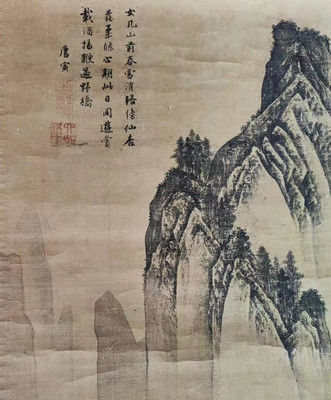 女几山前春雪消路傍仙杏
發柔條心期此日同遊賞
載酒揚鞭過野橋
唐寅